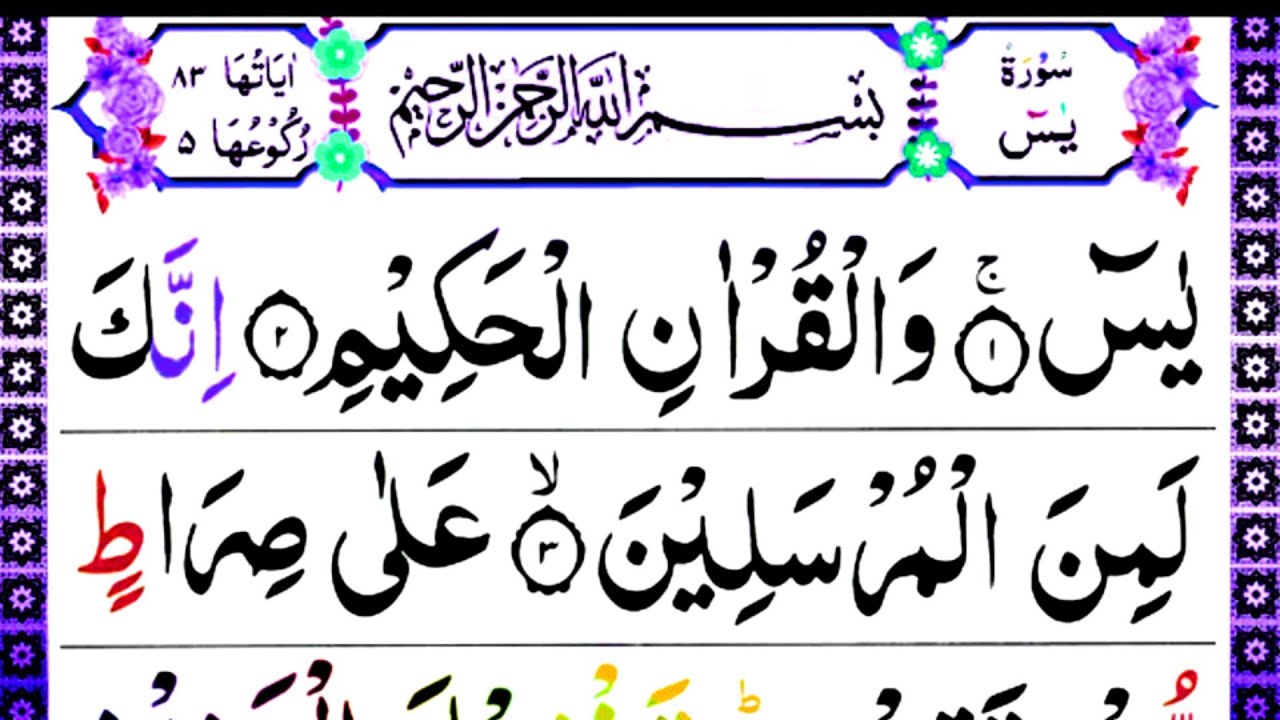 سُوْرَةُ
يٰسٓ
بِسْمِ اللّٰهِ الرَّحْمٰنِ الرَّحِيْمِ
اٰيَاتُهَا ٨٣
رُكُوْعُهَا ٥
يٰسٓ ۚ ﴿١﴾ وَالْقُرْاٰنِ الْحَكِيْمِ ﴿٢﴾ اِنَّكَ
لَمِنَ الْمُرْسَلِيْنَ ۙ ﴿٣﴾ عَلٰى صِرَاطٍ